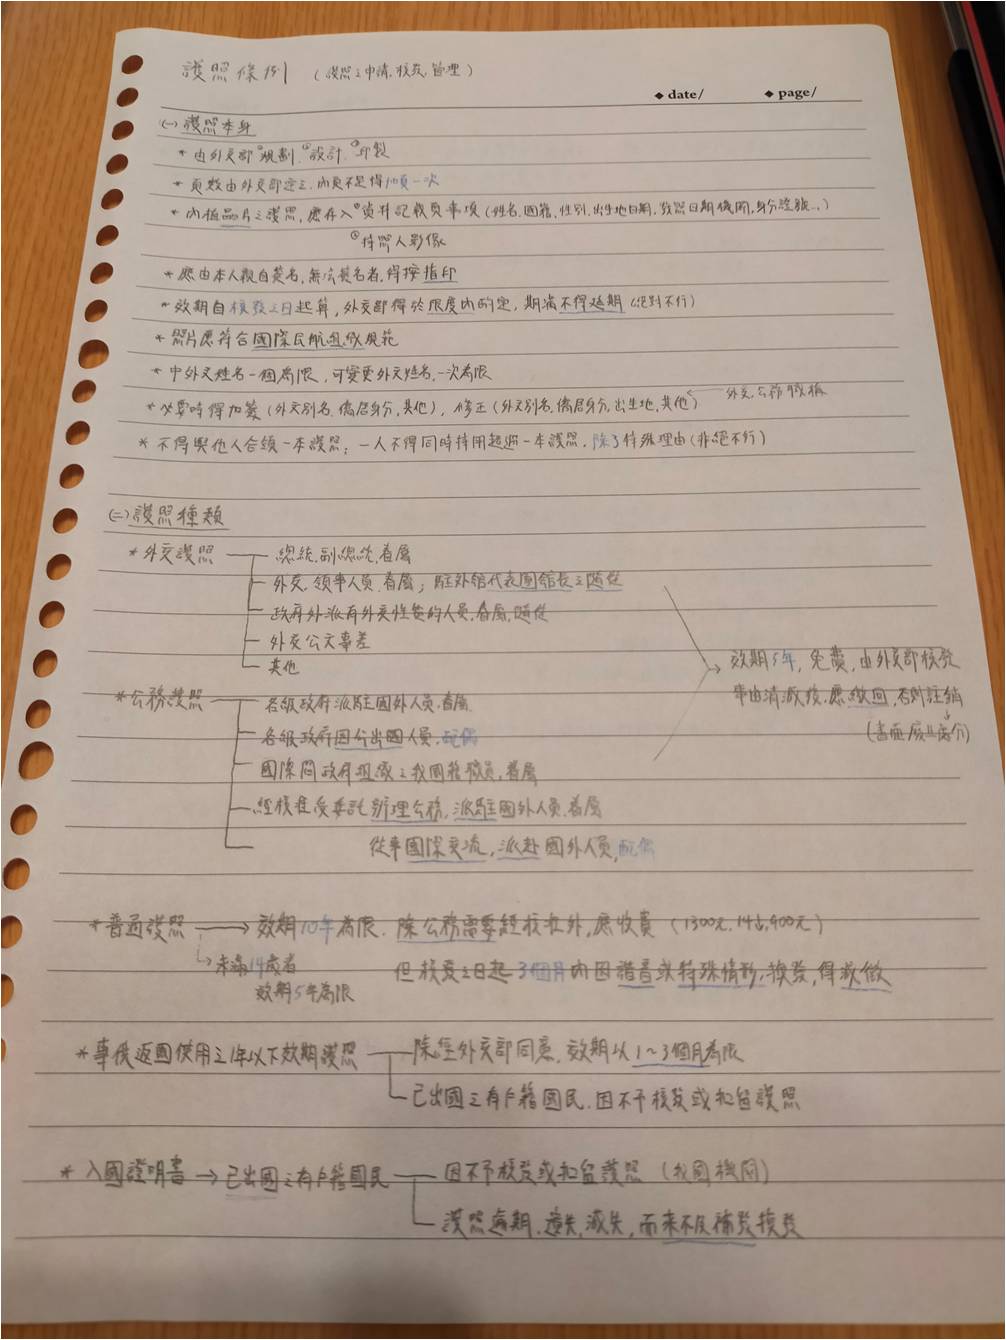 護照條例 (護照之申請.核發.管理)
◆ date/ ◆ page/
(一) 護照本身
* 由外交部①規劃.②設計.③印製
* 頁數由外交部定之.內頁不足得加頁一次
* 內植晶片之護照,應存入①資料記載頁事項(姓名.國籍.性別.出生地日期.發照日期機關.身分證號...)
②持照人影像
* 應由本人親自簽名,無法簽名者,得按指印
* 效期自核發之日起算,外交部得於限度內酌定,期滿不得延期(絕對不行)
* 照片應符合國際民航組織規範
* 中外文姓名一個為限,可變更外文姓名,一次為限
* 必要時得加簽(外文別名.僑居身分.其他), 修正(外文別名.僑居身分.出生地.其他) ← 外交.公務職稱
* 不得與他人合領一本護照; 一人不得同時持用超過一本護照,除了特殊理由(非絕不行)
(二) 護照種類
* 外交護照 總統.副總統.眷屬
外交.領事人員.眷屬; 駐外館代表團館長之隨從
政府外派有外交性質的人員.眷屬.隨從
外交公文專差
其他
效期5年, 免費, 由外交部核發
事由消滅後.應繳回,否則註銷
* 公務護照 各級政府派駐國外人員.眷屬
各級政府因公出國人員.配偶
國際間政府組織之我國籍職員.眷屬
經核准受委託辦理公務,派駐國外人員.眷屬
從事國際交流,派赴國外人員,配偶
* 普通護照 → 效期10年為限. 除公務需要經核准外,應收費 (1300元,14↓,900元)
↳ 未滿14歲者 但核發之日起3個月內因諧音或特殊情形,換發,得減徵
效期5年為限
* 專供返國使用之1年以下效期護照 除經外交部同意,效期以1~3個月為限
已出國之有戶籍國民.因不予核發或扣留護照
* 入國證明書 → 已出國之有戶籍國民 因不予核發或扣留護照(我國機關)
護照逾期.遺失,滅失,而來不及補發換發